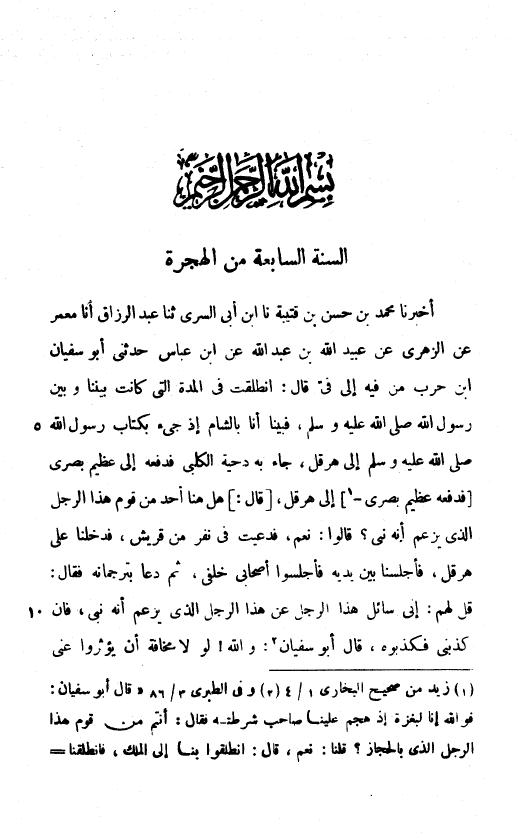 بسم الله الرحمن الرحيم
السنة السابعة من الهجرة
أخبرنا محمد بن حسن بن قتيبة نا ابن أبى السرى ثنا عبد الرزاق أنا معمر
عن الزهرى عن عبيد الله بن عبد الله عن ابن عباس حدثنى أبو سفيان
ابن حرب من فيه إلى فىّ قال: انطلقت فى المدة التى كانت بيننا و بين
رسول الله صلى الله عليه و سلم، فبينا أنا بالشام إذ جىء بكتاب رسول الله ٥
صلى الله عليه و سلم إلى هرقل، جاء به دحية الكلبى فدفعه إلى عظيم بصرى
[فدفعه عظيم بصرى -١] إلى هرقل، [قال:] هل هنا أحد من قوم هذا الرجل
الذى يزعم أنه نبى؟ قالوا: نعم، فدعيت فى نفر من قريش، فدخلنا على
هرقل، فأجلسنا بين يديه فأجلسوا أصحابى خلفى، ثم دعا بترجمانه فقال:
قل لهم: إنى سائل هذا الرجل عن هذا الرجل الذى يزعم أنه نبى، فان ١٠
كذبنى فكذبوه، قال أبو سفيان٢: و الله! لو لا مخافة أن يؤثروا عنى
(١) زيد من صحيح البخارى ١ / ٤ (٢) و فى الطبرى ٣ / ٨٦ «قال أبو سفيان:
فو الله إنا لبغزة إذ هجم علينا صاحب شرطته فقال: أنتم من قوم هذا
الرجل الذى بالحجاز؟ قلنا: نعم، قال: انطلقوا بنا إلى الملك، فانطلقنا =